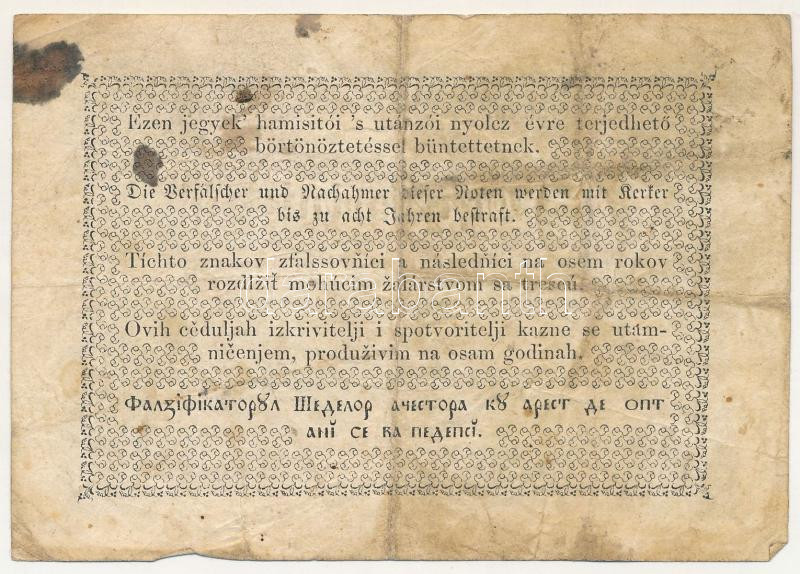 Ezen jegyek' hamisitói 's utánzói nyolcz évre terjedhető
börtönöztetéssel büntettetnek.
Die Verfälscher und Nachahmer dieser Noten werden mit Kerker
bis zu acht Jahren bestraft.
Tíchto znakov zfalssovňíci a následňíci na osem rokov
rozdlžiť mohúcim žalárstvom sa trescú.
Ovih cěduljah izkrivitelji i spotvoritelji kazne se utám-
ničenjem, produživim na osam godinah.
Фалзіфікаторꙋл Шеделор ачестора кꙋ арест де опт
анĭ се ва педепсі.
darabanth